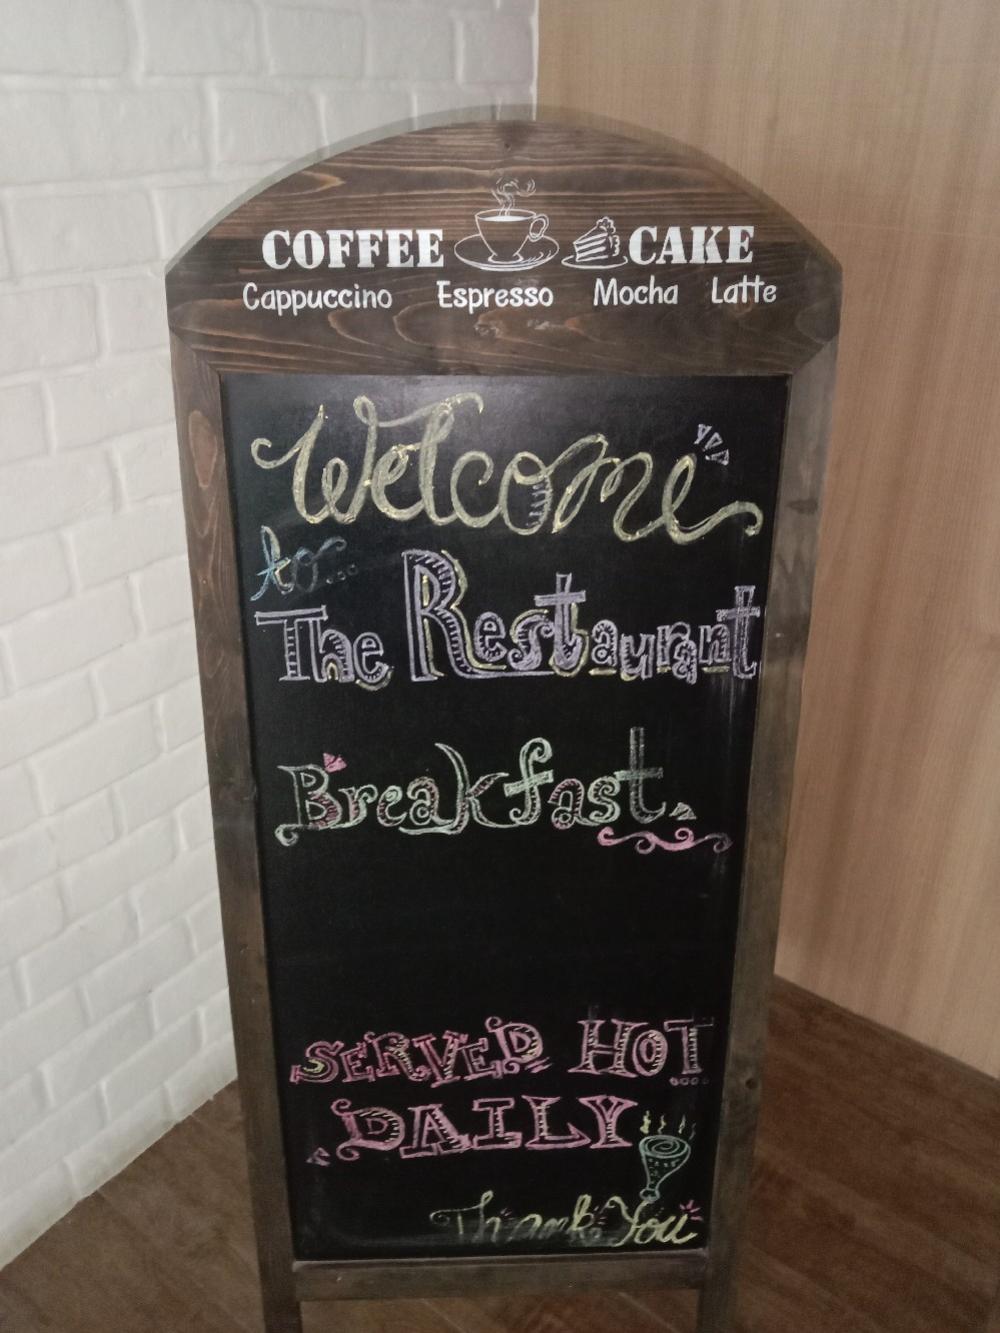 COFFEE CAKE
Cappuccino Espresso Mocha Latte
Welcome
to...
The Restaurant
Breakfast.
SERVED HOT
DAILY
Thank You